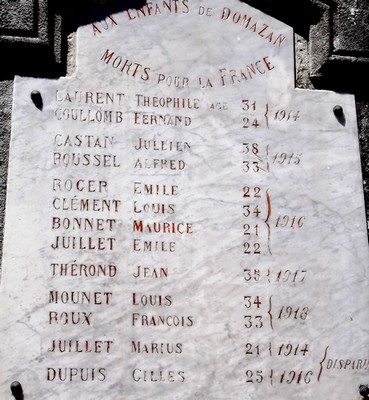 AUX ENFANTS DE DOMAZAN
MORTS POUR LA FRANCE
LAURENT THÉOPHILE AGE 31
COULLOMB FERNAND 24 } 1914
CASTAN JULLIEN 38
ROUSSEL ALFRED 33 } 1915
ROGER EMILE 22
CLÉMENT LOUIS 34
BONNET MAURICE 21
JUILLET EMILE 22 } 1916
THÉROND JEAN 35 { 1917
MOUNET LOUIS 34
ROUX FRANCOIS 33 } 1918
JUILLET MARIUS 21 { 1914
DUPUIS GILLES 25 { 1916 { DISPARUS